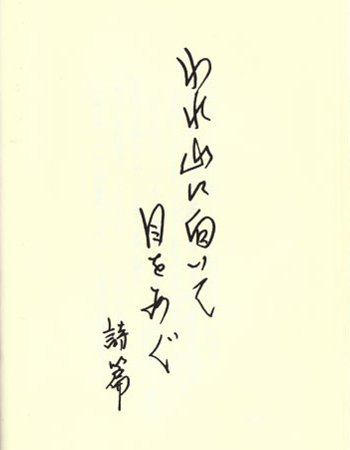 われ山に向いて
目をあぐ
詩篇